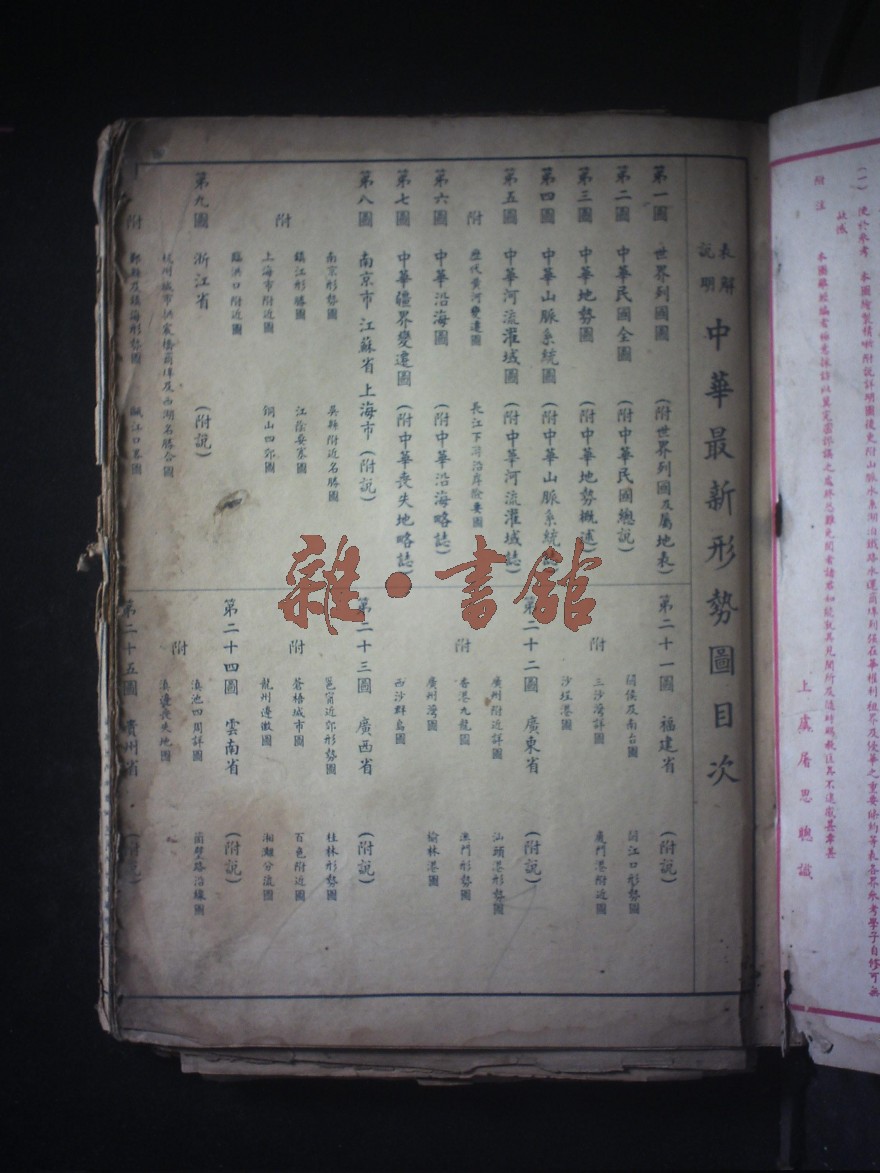 (一) 便於參考
附注
上虞屠思聰識
表解說明 中華最新形勢圖目次
第一圖 世界列國圖 (附世界列國及屬地表)
第二圖 中華民國全圖 (附中華民國總說)
第三圖 中華地勢圖 (附中華地勢概述)
第四圖 中華山脈系統圖 (附中華山脈系統誌)
第五圖 中華河流灌域圖 (附中華河流灌域誌)
附 歷代黃河變遷圖 長江下游沿岸險要圖
第六圖 中華沿海圖 (附中華沿海略誌)
第七圖 中華疆界變遷圖 (附中華喪失地略誌)
第八圖 南京市 江蘇省 上海市 (附說)
南京形勢圖 吳縣附近名勝圖
鎮江形勝圖 江陰要塞圖
附 上海市附近圖 銅山四郊圖
臨洪口附近圖
第九圖 浙江省 (附說)
杭州城市拱宸橋商埠及西湖名勝合圖
附 鄞縣及鎮海形勢圖 甌江口岸圖
第二十一圖 福建省 (附說)
閩侯及南台圖 閩江口形勢圖
附 三沙灣詳圖 廈門港附近圖
沙埕港圖
第二十二圖 廣東省 (附說)
廣州附近詳圖 汕頭港形勢圖
附 香港九龍圖 澳門形勢圖
廣州灣圖 榆林港圖
西沙群島圖
第二十三圖 廣西省 (附說)
邕甯近郊形勢圖 桂林形勢圖
附 蒼梧城市圖 百色附近圖
龍州邊徼圖 湘灕分流圖
第二十四圖 雲南省 (附說)
滇池四周詳圖 箇碧路沿線圖
附 滇邊喪失地圖
第二十五圖 貴州省 (附說)
雜·書館